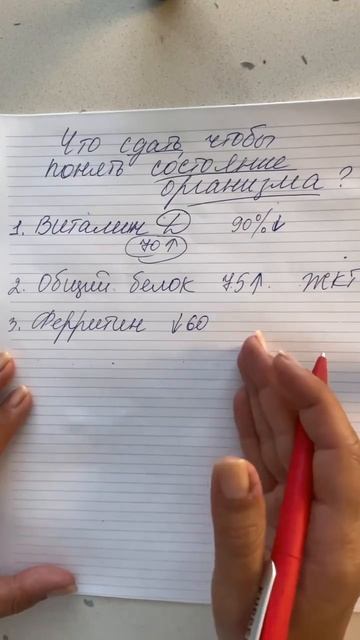 Что сдать, чтобы
понять состояние
организма?
1. Витамин D 90%↓
70↑
2. Общий белок 75↑. ЖКТ
3. Ферритин ↓60